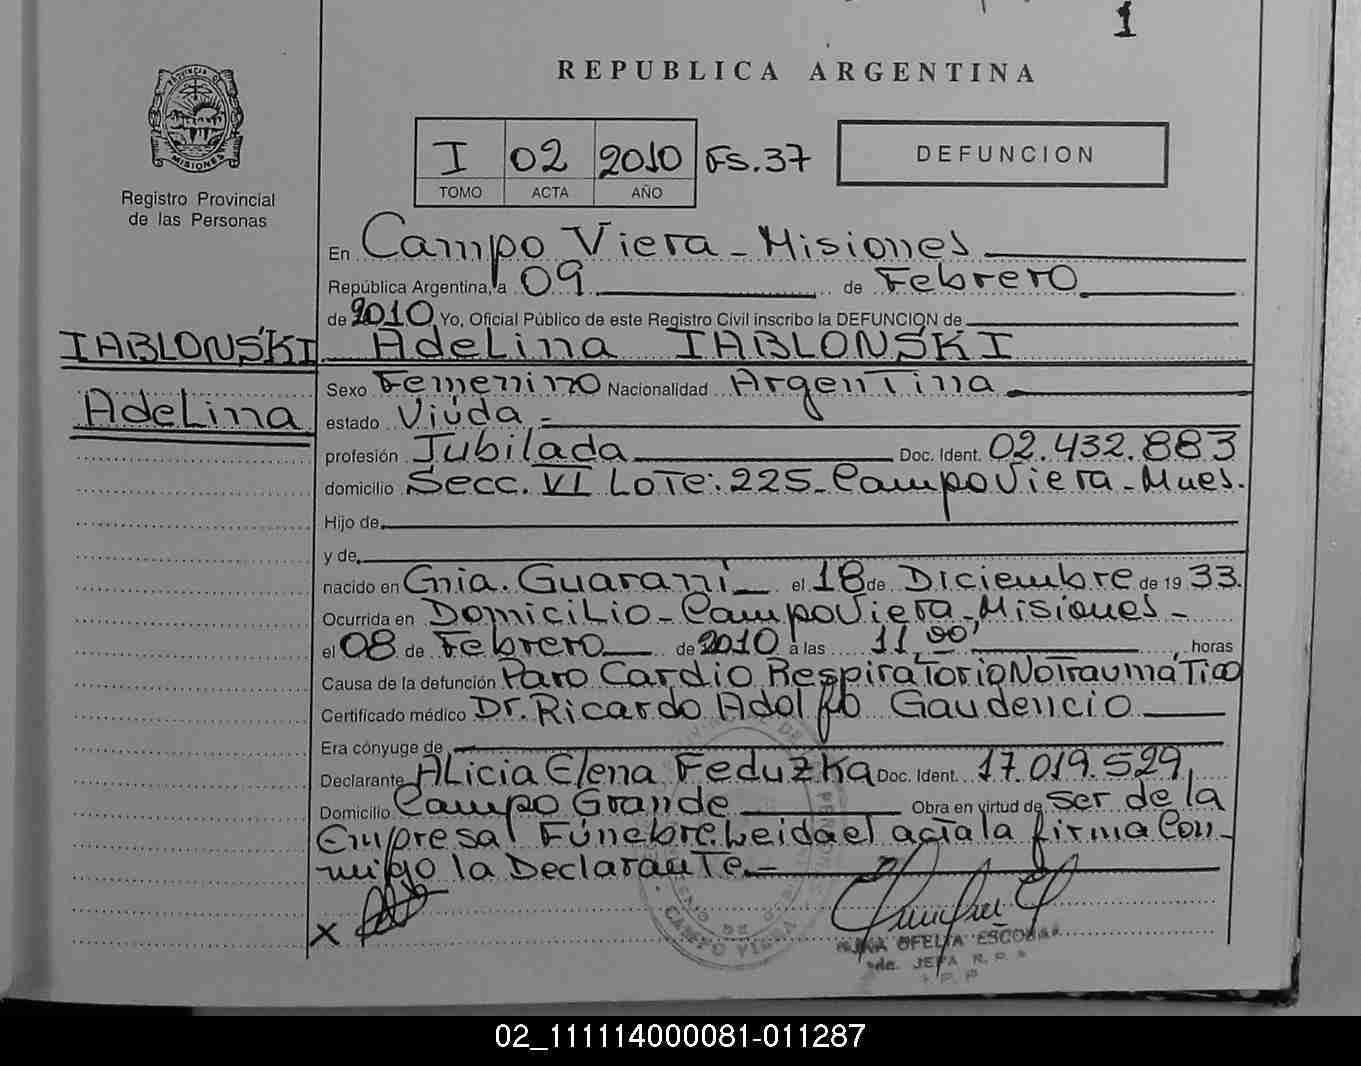 1
REPUBLICA ARGENTINA
PROVINCIA DE
MISIONES
Registro Provincial
de las Personas
I 02 2010 Fs.37
TOMO ACTA AÑO
DEFUNCION
En Campo Viera - Misiones
República Argentina, a 09 de Febrero
de 2010 Yo, Oficial Público de este Registro Civil inscribo la DEFUNCION de
IABLONSKI Adelina IABLONSKI
Adelina
Sexo Femenino Nacionalidad Argentina
estado Viúda -
profesión Jubilada Doc. Ident. 02.432.883
domicilio Secc. VI Lote: 225 - Campo Viera - Mnes.
Hijo de
y de
nacido en Cnia. Guaraní el 18 de Diciembre de 1933.
Ocurrida en Domicilio - Campo Viera - Misiones -
el 08 de Febrero de 2010 a las 11,00' horas
Causa de la defunción Paro Cardio Respiratorio No Traumático
Certificado médico Dr. Ricardo Adolfo Gaudencio
Era cónyuge de
Declarante Alicia Elena Feduzka Doc. Ident. 17.019.529,
Domicilio Campo Grande Obra en virtud de ser de la
Empresa Fúnebre. Leida el acta la firma Con-
migo la Declarante.-
X
CAMPO VIERA
OFELIA ESCOBAR
JEFA R.P.
02_111114000081-011287